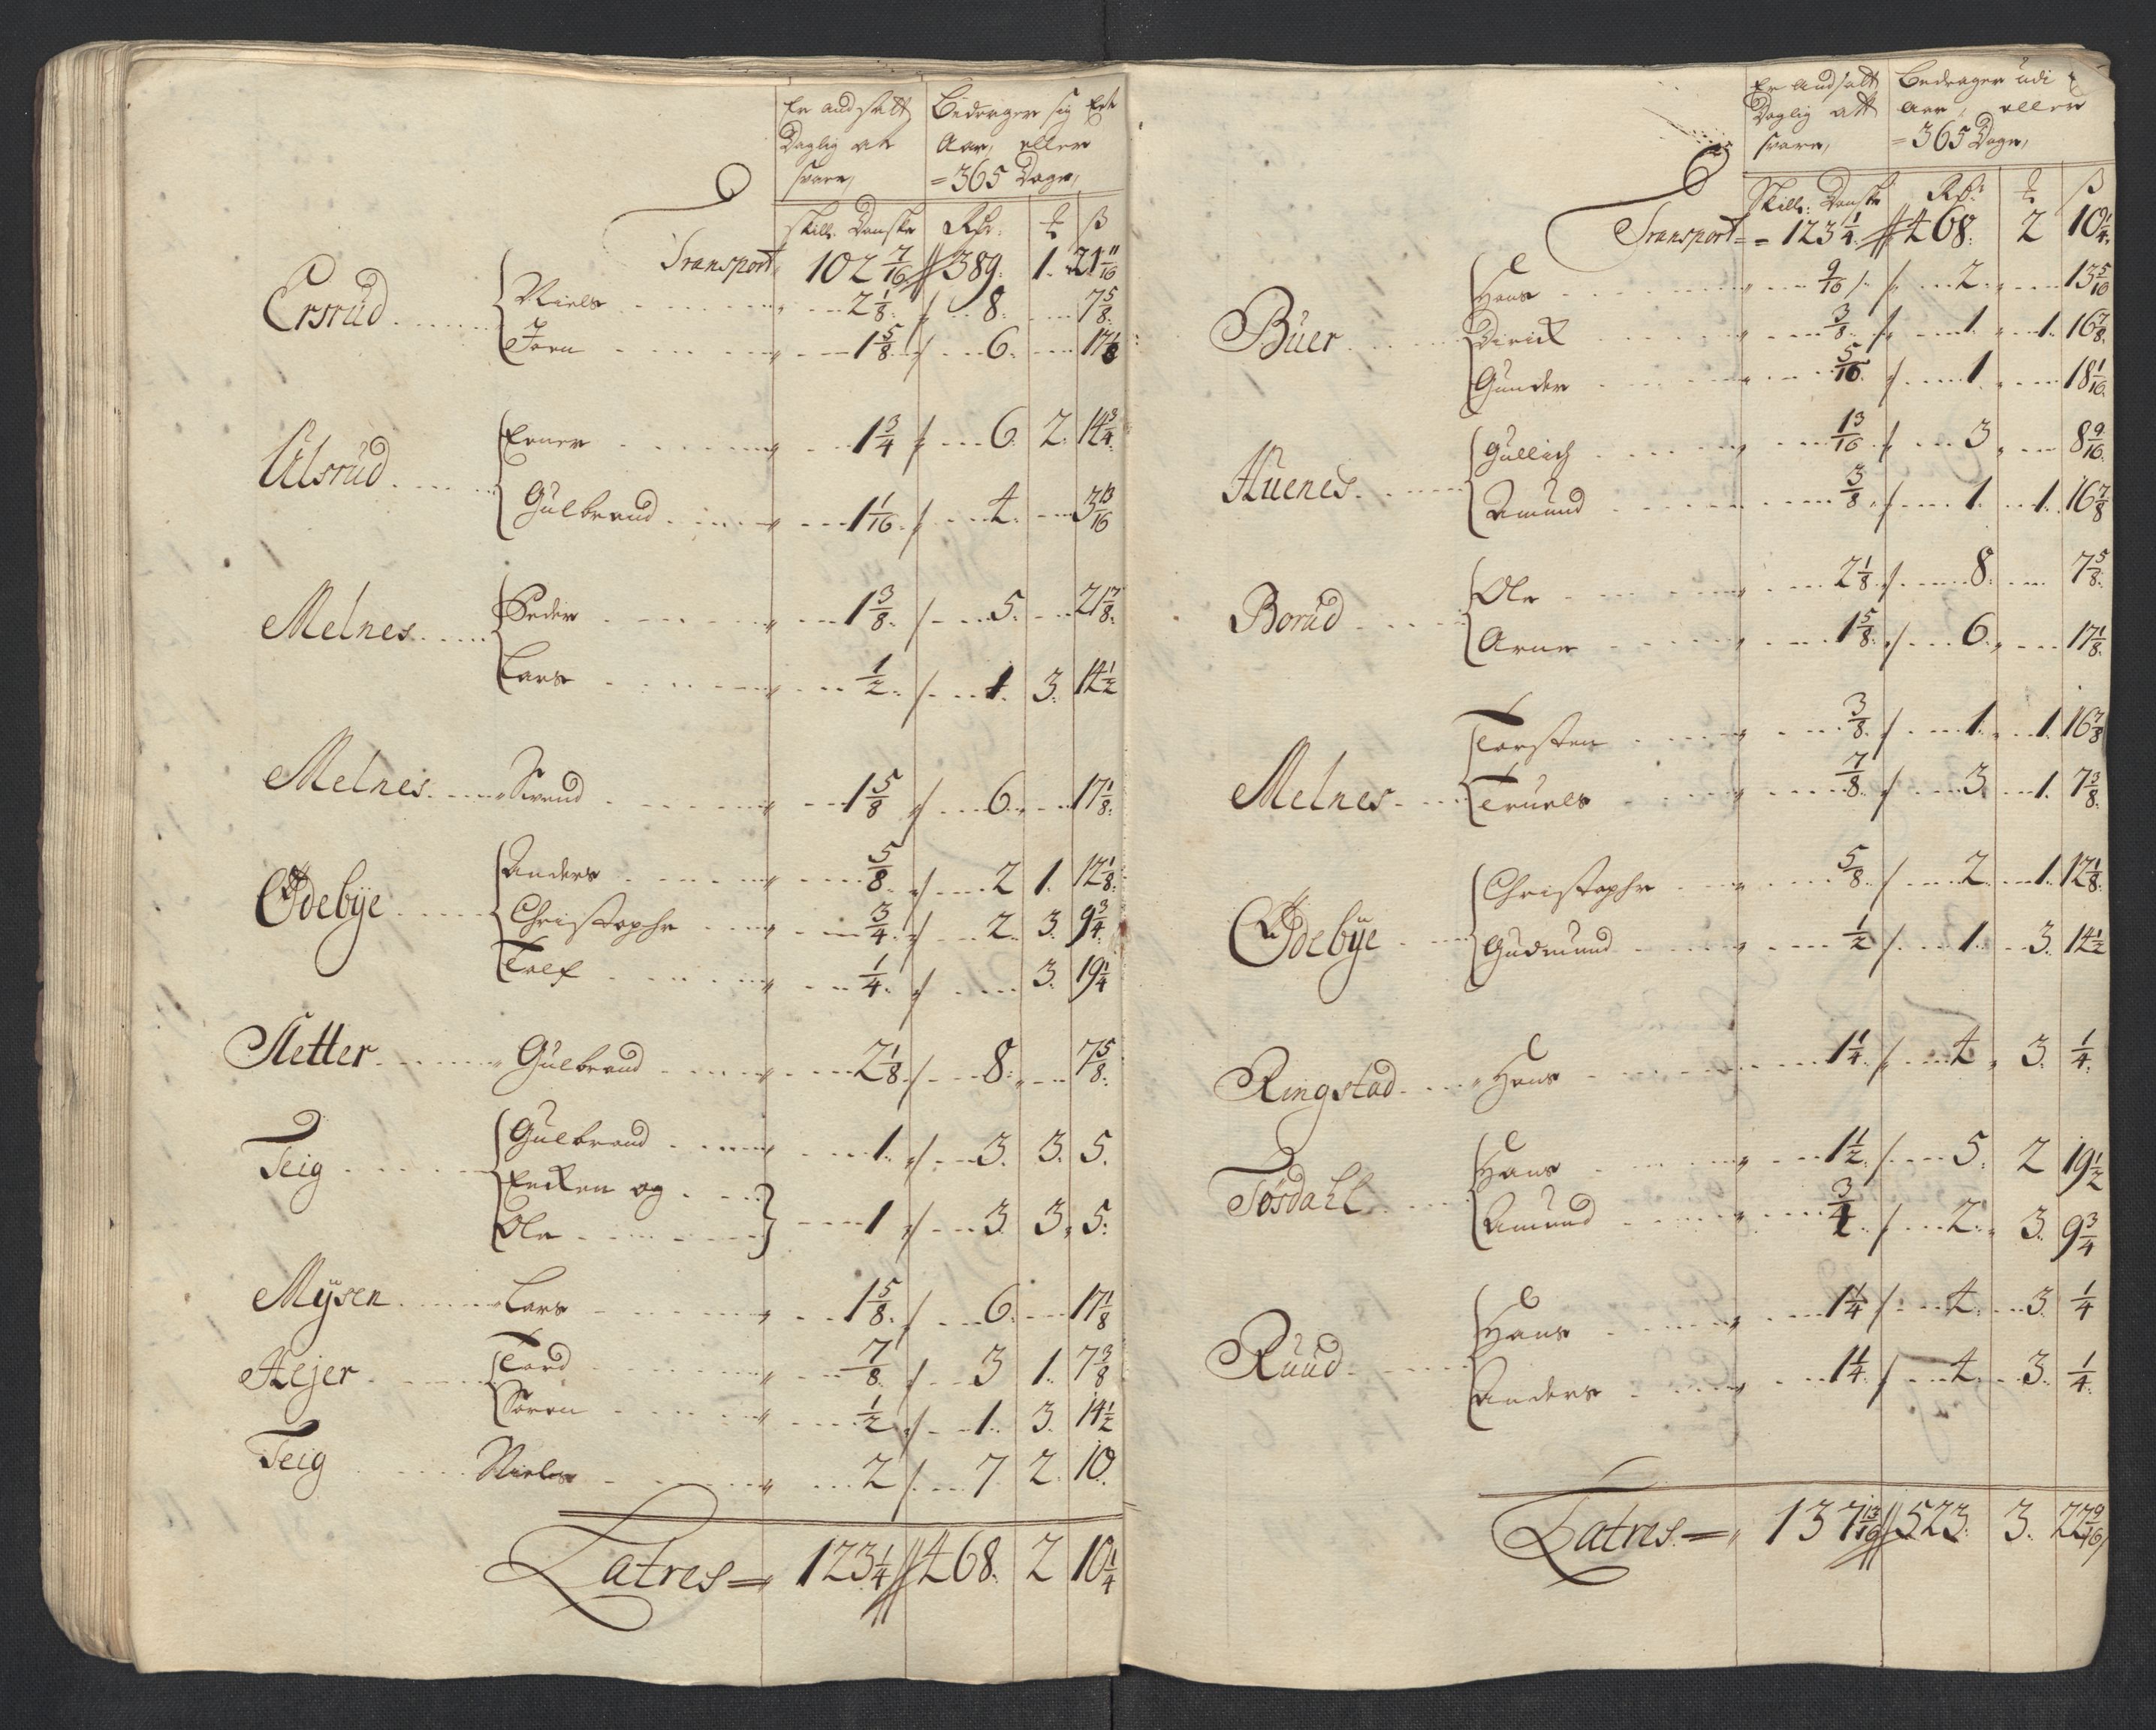 Er andsatt Bedrager sig Et
Daglig at Aar, eller
svare, =365 Dage,
Skill: Danske Rdr: ß
Transport 102 7/16 // 389. 1. 21 11/16
Ersrud Niels 2 1/8 8. 7 5/8
Joen 1 5/8 6. 17 1/8
Ulsrud Erner 1 3/4 6. 2. 14 3/4
Gulbrand 1 1/16 4. 3 13/16
Melnes Peder 1 3/8 5. 21 7/8
Lars 1/2 1. 3. 14 1/2
Melnes Svend 1 5/8 6. 17 1/8
Ødebye Anders 5/8 2 1. 12 1/8
Christopher 3/4 2. 3. 9 3/4
Tolf 1/4 3. 19 1/4
Sletter Gulbrand 2 1/8 8. 7 5/8
Teig Gulbrand 1. 3. 3. 5.
og
Ole 1 3. 3. 5.
Mysen Lars 1 5/8 6. 17 1/8
Hejer Tord 7/8 3 1. 7 3/8
Søren 1/2 1. 3. 14 1/2
Teig Niels 2 7 2. 10.
Latres = 123 1/4 // 468. 2 10 1/4
Er Andsatt Bedrager udi
Daglig att Aar, eller
svare, =365 Dage,
Skill: Danske Rdr: ß
Transport = 123 1/4 // 468. 2 10 1/4
Buer Hans 9/16 2. 13 5/16
Dirick 3/8 1. 1. 16 7/8
Gunder 5/16 1. 18 1/16
Huenes Gullich 13/16 3 8 9/16
Amund 3/8 1. 1. 16 7/8
Borud Ole 2 1/8 8. 7 5/8
Arne 1 5/8 6. 17 1/8
Melnes Torsten 3/8 1. 1. 16 7/8
Truels 7/8 3. 1. 7 3/8
Ødebye Christopher 5/8 2. 1. 12 1/8
Gudmund 1/2 1. 3. 14 1/2
Ringstad Hans 1 1/4 4. 3. 1/4
Tøsdahl Hans 1 1/2 5. 2 19 1/2
Amund 3/4 2. 3. 9 3/4
Ruud Hans 1 1/4 4. 3. 1/4
Anders 1 1/4 4. 3. 1/4
Latres = 137 13/16 // 523. 3. 22 9/16